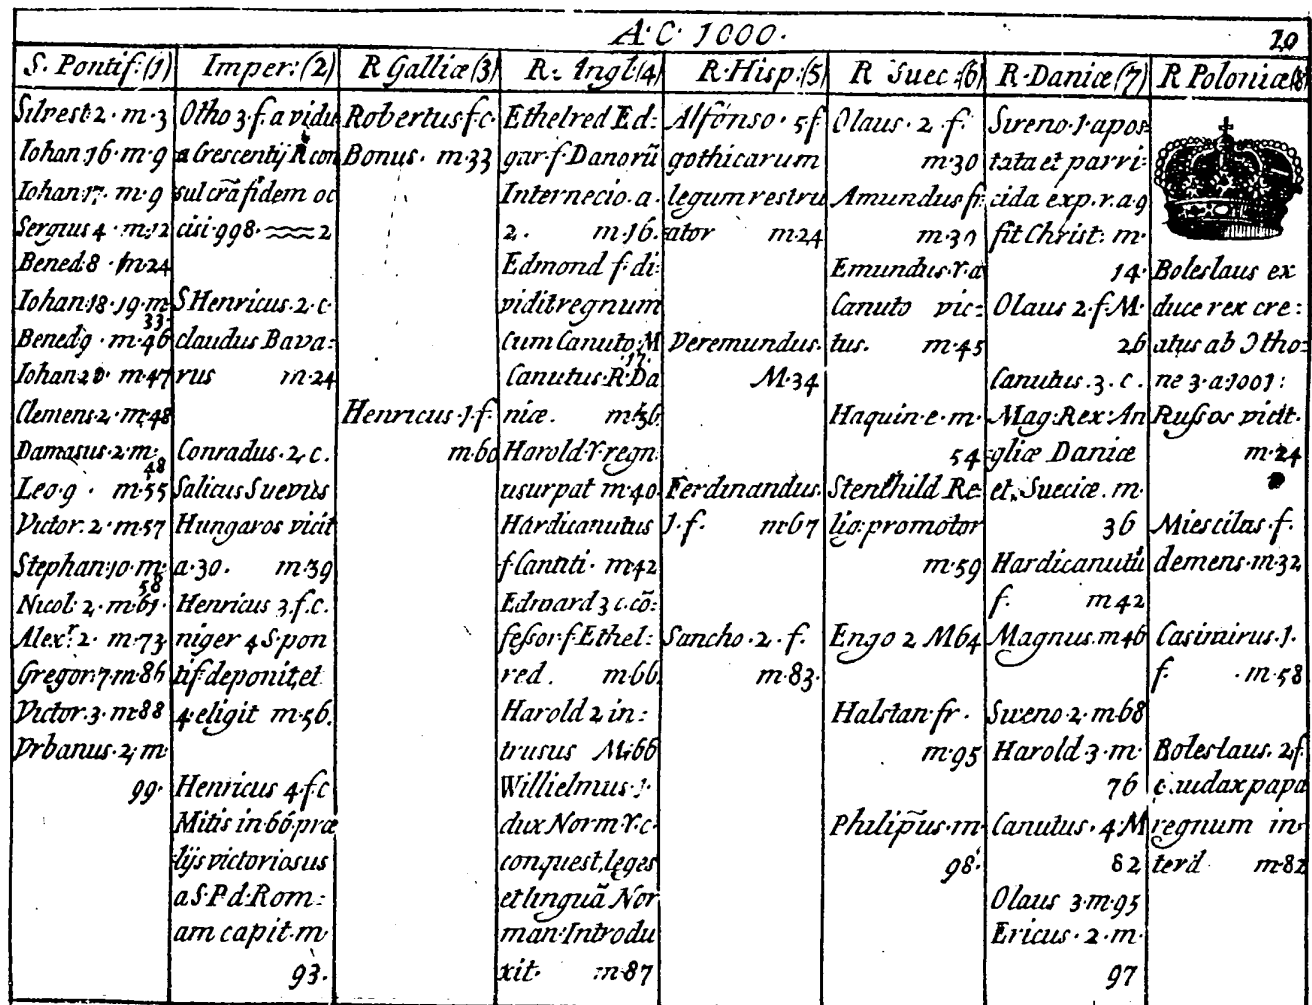 A·C· 1000·
19
S. Pontif:(1)
Silvest 2 · m · 3
Iohan 16 · m · 9
Iohan 17 · m · 9
Sergius 4 · m · 12
Bened 8 · m 24
Iohan 18 · 19 · m
33·
Bened 9 · m · 46
Iohan 20 · m · 47
Clemens 2 · m · 48
Damasus · 2 · m ·
48
Leo · 9 · m · 55
Victor · 2 · m · 57
Stephan · 10 · m ·
58
Nicol · 2 · m · 61 ·
Alexr · 2 · m · 73
Gregor · 7 · m · 86
Victor · 3 · m · 88
Vrbanus · 2 · m
99·
Imper:(2)
Otho 3 · f · a vidu
a Crescentij R con
sul crã fidem oc
cisi · 998 · 2
S Henricus · 2 · c ·
claudus Bava:
rus m · 24
Conradus · 2 · c ·
Salicus Suevus
Hungaros vicit
a · 30 · m · 39
Henricus 3 · f · c ·
niger 4 S · pon
tif deponit, et
4 · eligit m · 56 ·
Henricus 4 · f · c
Mitis in 66 præ
lijs victoriosus
a S · P d · Rom:
am capit · m
93 ·
R Galliæ (3)
Robertus f · c ·
Bonus · m · 33
Henricus · 1 · f ·
m · 60
R: Ingl(4)
Ethelred Ed:
gar · f · Danorũ
Internecio · a ·
2 · m · 16 ·
Edmond f · di:
viditregnum
Cum Canuto · M
·17·
Canutus · R · Da
niæ · m · 36
Harold · r · regn
usurpat m · 40 ·
Hardicanutus
f · Canuti · m · 42
Edward 3 c · cõ:
fessor · f · Ethel:
red · m · 66
Harold 2 in:
trusus M · 66
Willielmus · 1 ·
dux Norm · r · c ·
conquest, leges
et linguã Nor
man · Introdu
xit · m · 87
R · Hisp:(5)
Alfonso · 5 f
gothicarum
legum restru
ator m · 24
Veremundus ·
M · 34
Ferdinandus ·
1 · f · m · 67
Sancho · 2 · f ·
m · 83 ·
R Suec:(6)
Olaus · 2 · f ·
m · 30
Amundus fr
m · 30
Emundus · r · a
Canuto vic:
tus · m · 45
Haquin · e · m ·
54
Stenkhild Re:
lig: promotor
m · 59
Engo 2 M 64
Halstan · fr ·
m · 95
Philipũs · m ·
98 ·
R · Daniæ (7)
Sweno · 1 · apos
tata et parri:
cida exp · r · a · 9
fit Christ: m ·
14 ·
Olaus 2 · f · M ·
26
Canutus · 3 · c ·
Mag: Rex · An
gliæ Daniæ
et Sueciæ · m ·
36
Hardicanutũ
f · m 42
Magnus · m 46
Sweno · 2 · m · 68
Harold · 3 · m ·
76
Canutus · 4 · M
82
Olaus 3 · m · 95
Ericus · 2 · m ·
97
R Poloniæ(8)
Boleslaus ex
duce rex cre:
atus ab Otho:
ne 3 · a · 1001:
Russos vicit ·
m · 24
Miescilas · f ·
demens · m · 32
Casimirus · 1 ·
f · · m · 58
Boleslaus · 2 f ·
c · audax papa
regnum in:
terd m · 82